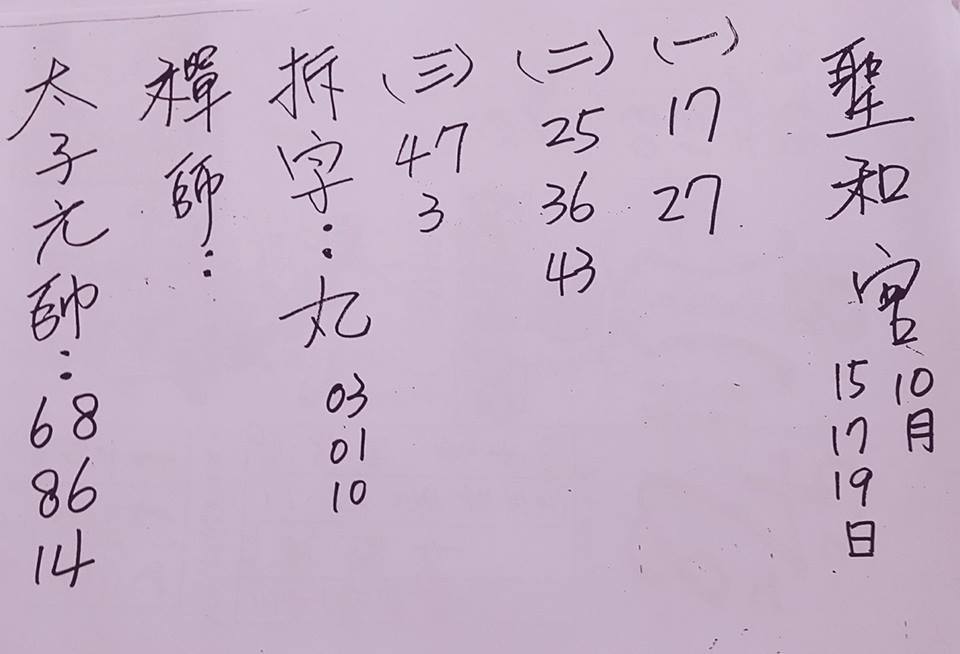 聖和宮
10月
15 17 19日
(一) 17 27
(二) 25 36 43
(三) 47 3
拆字:丸 03 01 10
禪師:
太子元帥:68 86 14